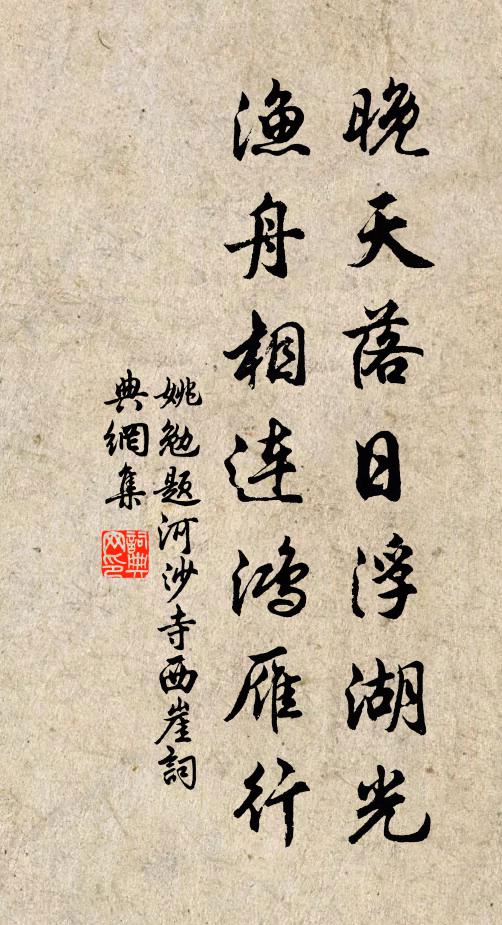 晚天落日浮湖光
渔舟相连鸿雁行
姚勉题河沙寺西崖詞
典網集
詞典網印